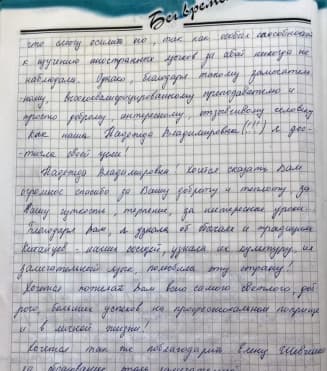 Бег време
что смогу осилить его, так как особых способностей
к изучению иностранных языков за собой никогда не
наблюдала. Однако, благодаря такому замечатель
ному, высококвалифицированному преподавателю и
просто доброму, интересному, отзывчивому человеку
как наша Надежда Владимировна (!!!) я дос-
тигла своей цели!
Надежда Владимировна! Хочется сказать Вам
огромное спасибо за Вашу доброту и теплоту, за
Вашу чуткость, терпение, за интересные уроки.
Благодаря Вам, я узнала об обычаях и традициях
Китайцев - наших соседей, узнала их культуру, их
замечательный язык, полюбила эту страну!
Хочется пожелать Вам всего самого светлого, доб
рого, больших успехов на профессиональном поприще
и в личной жизни!
Хочется так же поблагодарить Елену
за